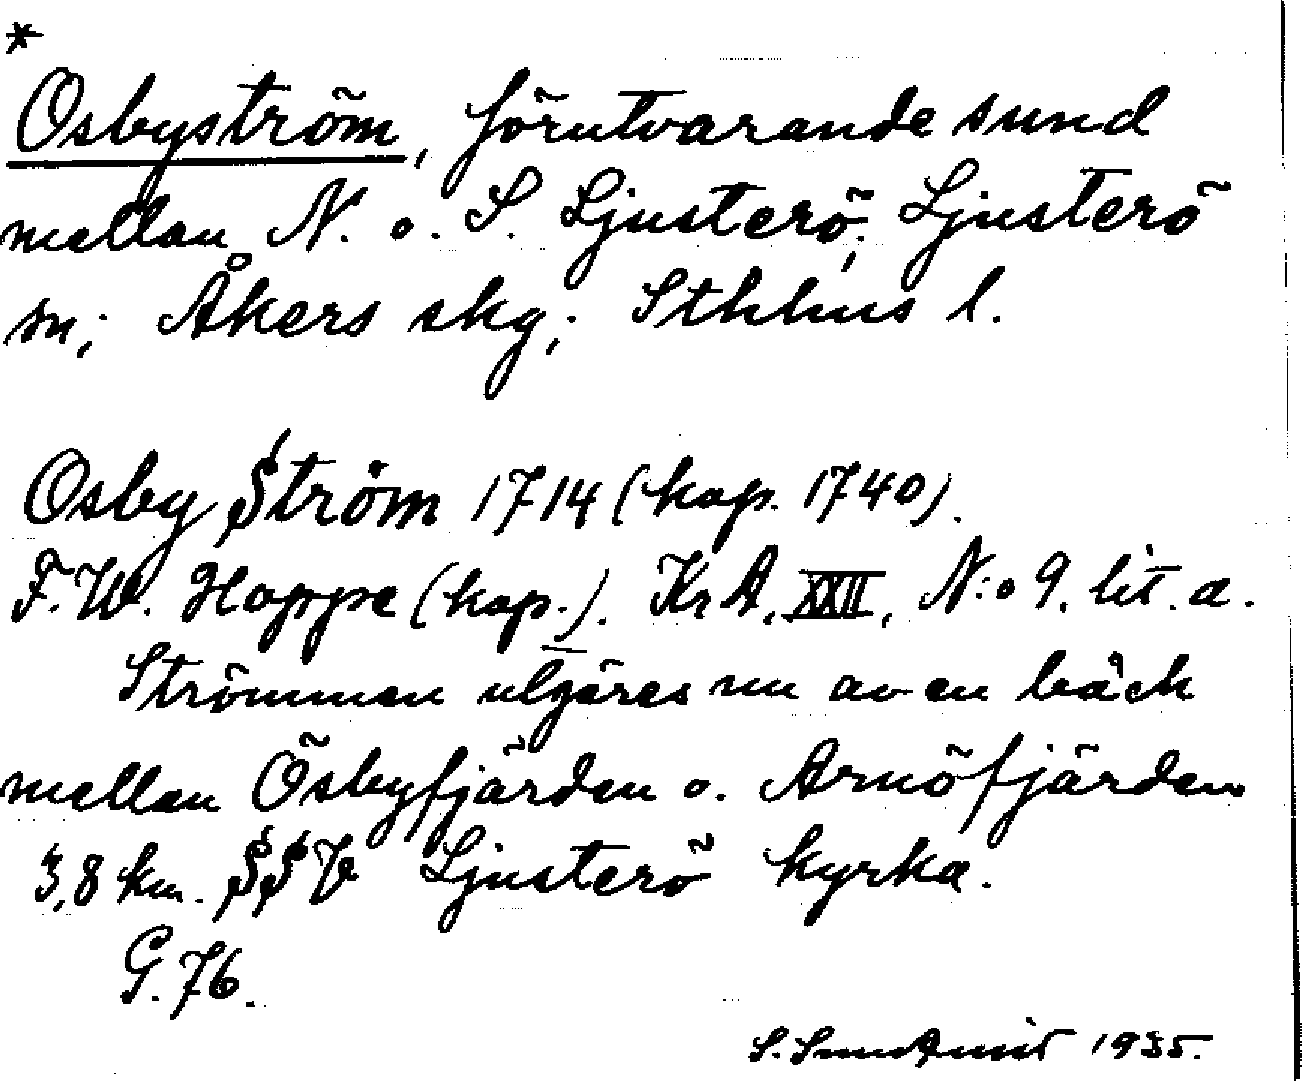 *
Osbyström, förutvarande sund
mellan N. o. S. Ljusterö; Ljusterö
sn; Åkers skg; Sthlms l.
Osby Ström 1714 (kop. 1740).
F. W. Hoppe (kop.). KrA, XXII, N:o 9. lit. a.
Strömmen utgöres nu av en bäck
mellan Ösbyfjärden o. Arnöfjärden
3,8 km. SSV Ljusterö kyrka.
G. 76.
S. Sundquist 1935.